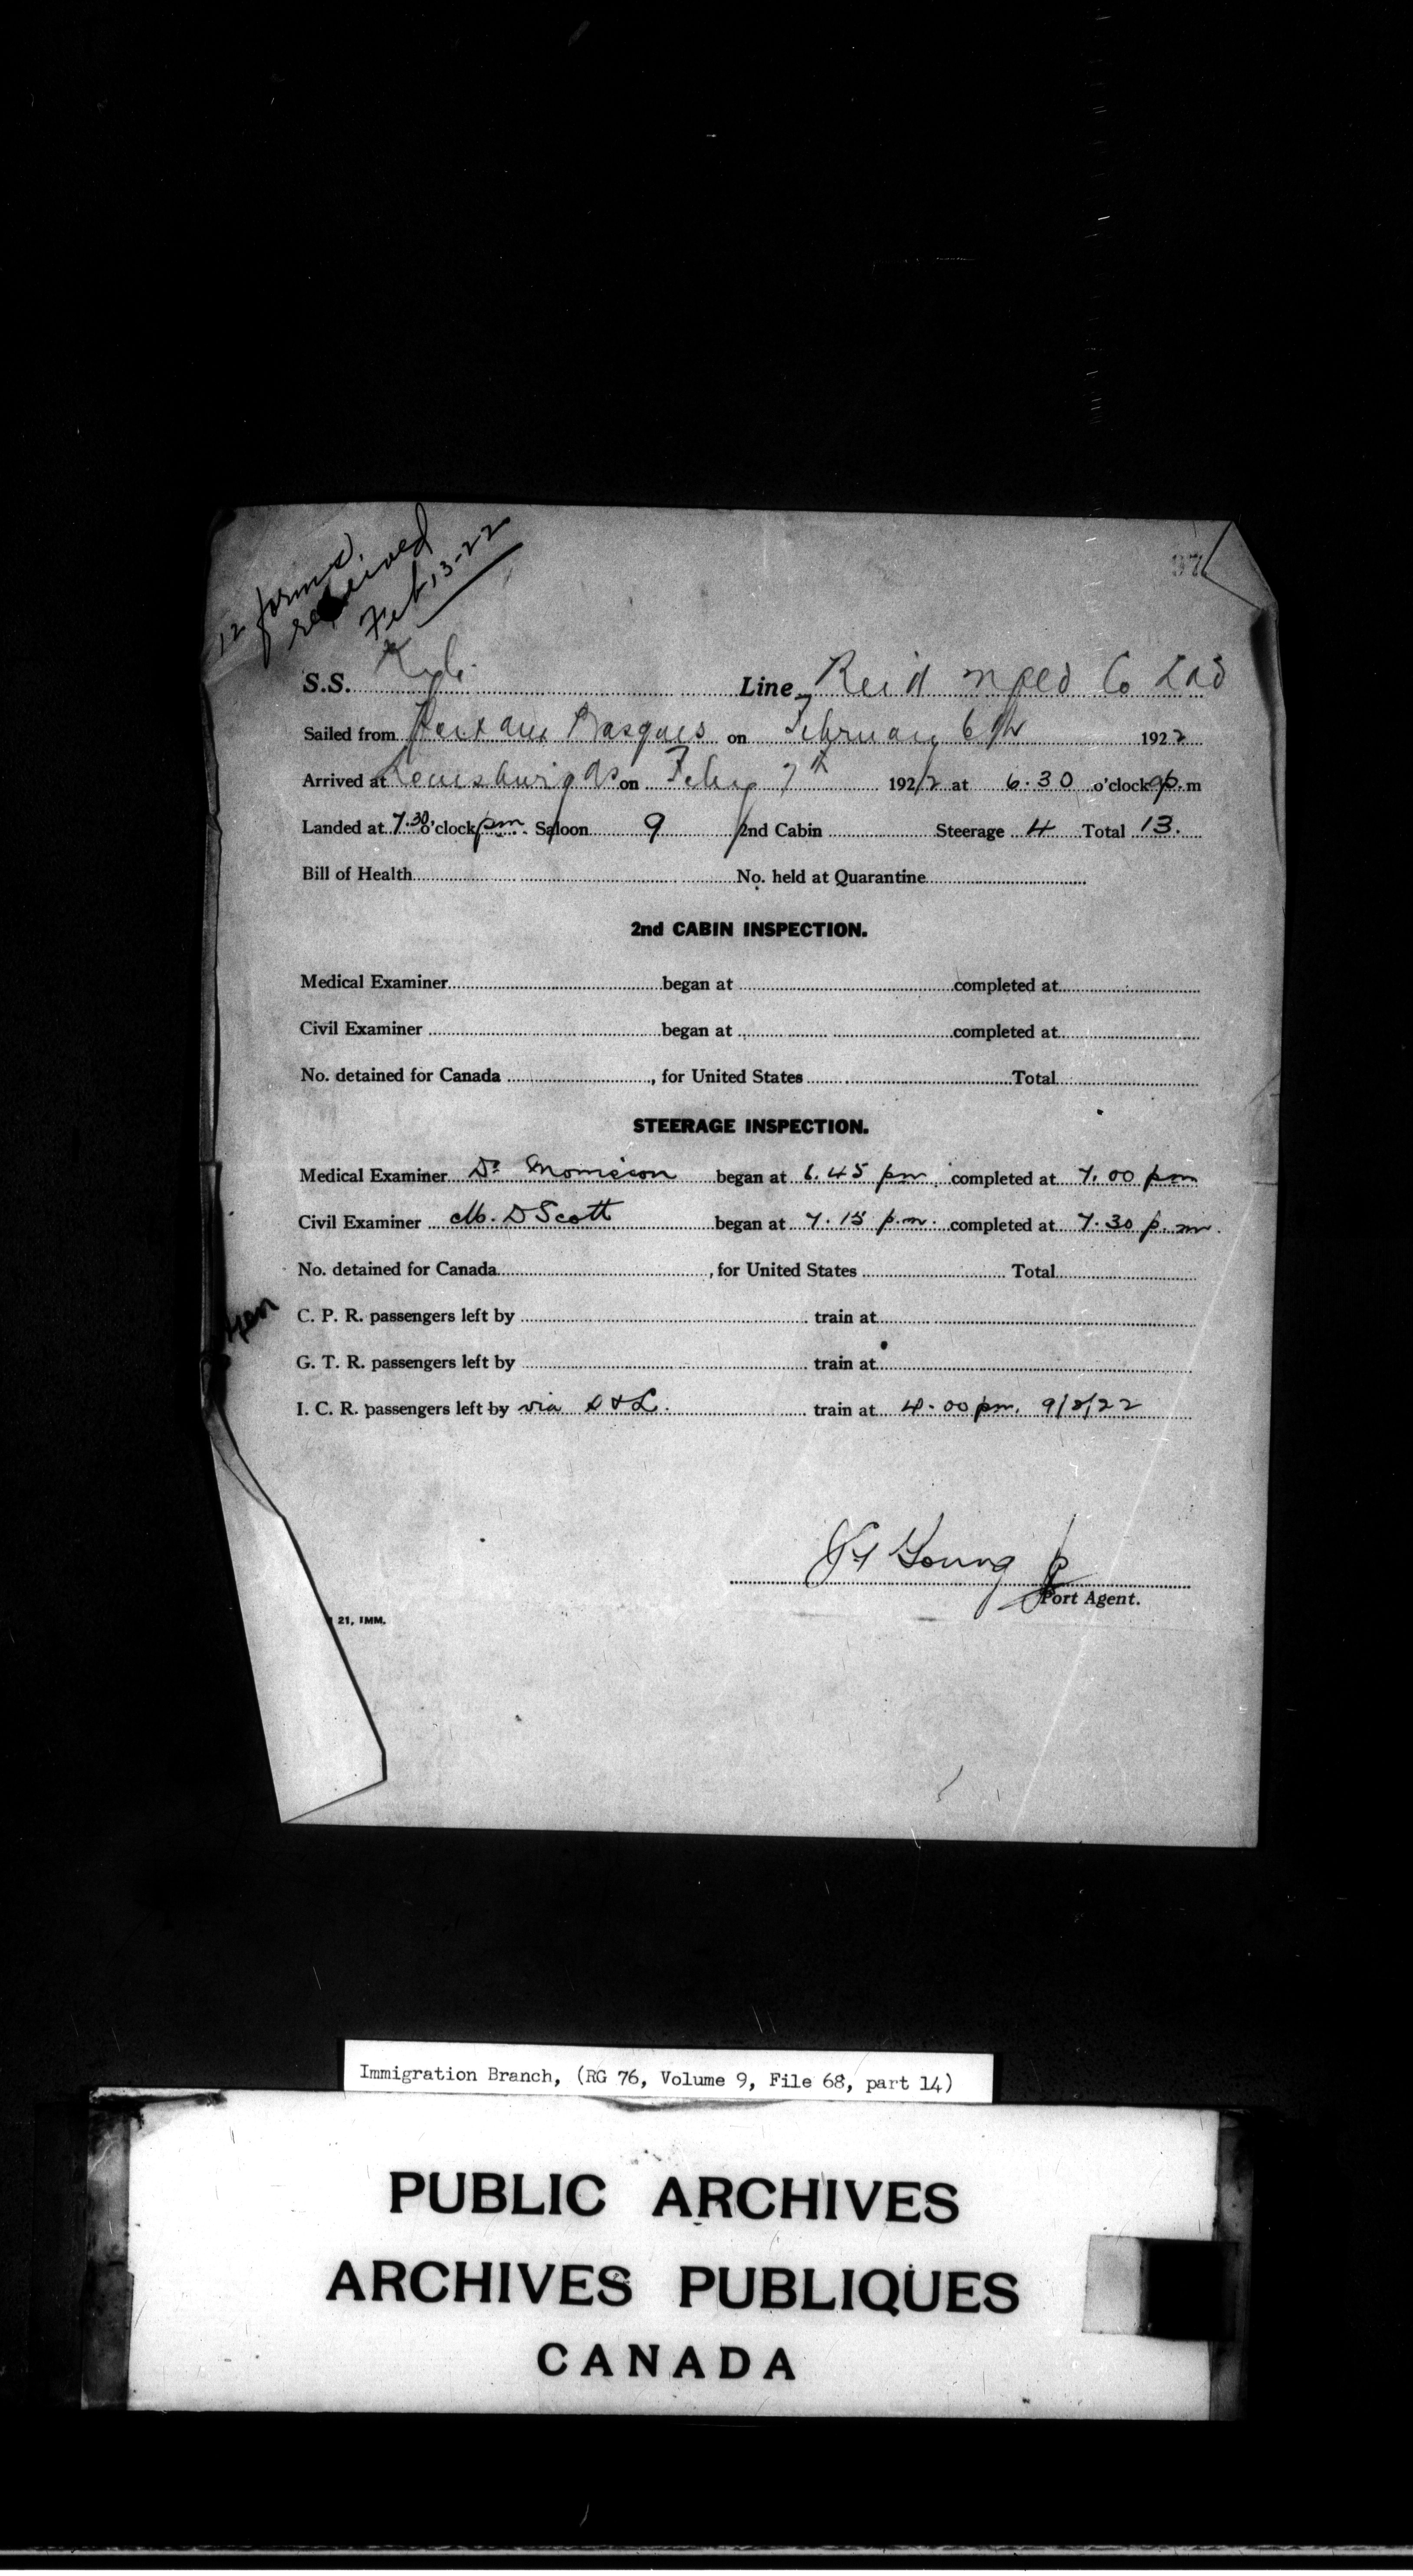 12 forms
received
Feb 13-22
S.S. Kyle Line Reid Nfld Co Ltd
Sailed from Port aux Basques on February 6th 1922
Arrived at Louisburg NS on Feby 7th 1922 at 6.30 o'clock p.m
Landed at 7.30 o'clock pm Saloon 9 2nd Cabin Steerage 4 Total 13.
Bill of Health No. held at Quarantine
2nd CABIN INSPECTION.
Medical Examiner began at completed at
Civil Examiner began at completed at
No. detained for Canada , for United States Total
STEERAGE INSPECTION.
Medical Examiner Dr Morrison began at 6.45 pm completed at 7.00 pm
Civil Examiner M. D Scott began at 7.15 p.m. completed at 7.30 p.m.
No. detained for Canada , for United States Total
C. P. R. passengers left by train at
G. T. R. passengers left by train at
I. C. R. passengers left by via S & L. train at 4.00 pm. 9/2/22
Young
Port Agent.
21, IMM.
Immigration Branch, (RG 76, Volume 9, File 68, part 14)
PUBLIC ARCHIVES
ARCHIVES PUBLIQUES
CANADA